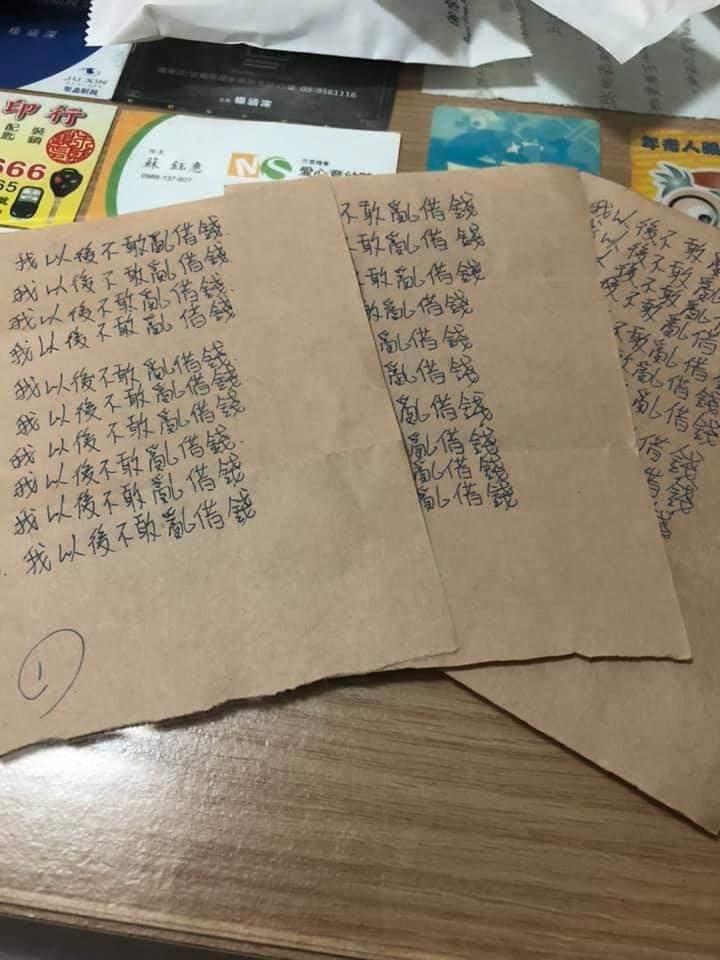 楊溢深
JU XIN
03-9561116
楊溢深
印行
配 裝
匙 鎖
666
65
蘇 鈺惠
0989-137-607
NS
年青人眼
我以後不敢亂借錢.
我以後不敢亂借錢
我以後不敢亂借錢.
我以後不敢亂借錢
我以後不敢亂借錢.
我以後不敢亂借錢
我以後不敢亂借錢
我以後不敢亂借錢.
我以後不敢亂借錢
我以後不敢亂借錢
1
不敢亂借錢
敢亂借錢
敢亂借錢
敢亂借錢
亂借錢
亂借錢
亂借錢
亂借錢
亂借錢
亂借錢
我以後不敢
以後不敢
後不敢亂
後不敢亂
不敢亂借
亂借錢
亂借錢
借錢
錢